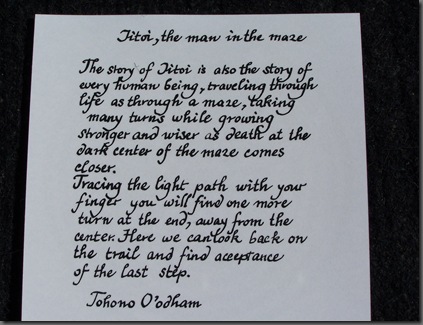 Iitoi, the man in the maze
The story of Iitoi is also the story of
every human being, traveling through
life as through a maze, taking
many turns while growing
stronger and wiser as death at the
dark center of the maze comes
closer.
Tracing the light path with your
finger you will find one more
turn at the end, away from the
center. Here we can look back on
the trail and find acceptance
of the last step.
Tohono O'odham